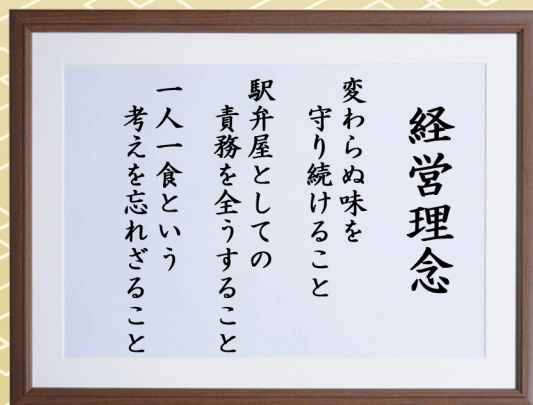 経営理念
変わらぬ味を
守り続けること
駅弁屋としての
責務を全うすること
一人一食という
考えを忘れざること